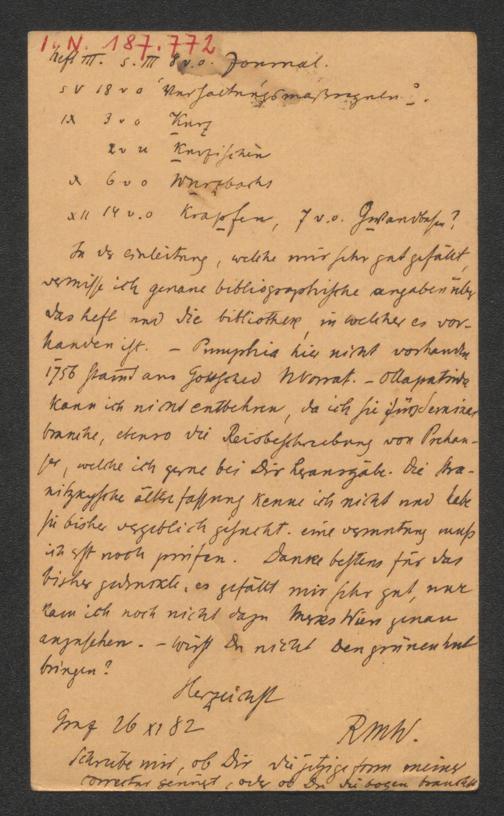 I. N. 187.772
Heft III. S. III 8 v. o. Journal.
S V 18 v o Verhaltungsmaßregeln?.
IX 3 v o Kurz
2 v u Kurzischen
X 6 v o Wurzbachs
XII 14 v. o Krapfen, 7 v. o.
In der einleitung, welche mir sehr gut gefällt,
vermisse ich genaue bibliographische angaben über
das heft und die bibliothek, in welcher es vor-
handen ist. – hier nicht vorhanden
1756 stammt aus Gottsched – Ollapatrida
kann ich nicht entbehren, da ich sie fürs Seminar
brauche, ebenso die Reisbeschreibung von Prehau-
ser, welche ich gerne bei Dir herausgäbe. Die Stra-
nitzkysche ältere fassung kenne ich nicht und habe
sie bisher vergeblich gesucht. eine vermutung muß
ich erst noch prüfen. Danke bestens für das
bisher gedruckte, es gefällt mir sehr gut, nur
kam ich noch nicht dazu Merks Wien genau
anzusehen. – wirst Du nicht den grünen hut
bringen?
Herzlichst
Graz 26 XI 82 RMW.
Schreibe mir, ob Dir die jetzige form meiner
correctur genügt, oder ob Du die bogen brauchst